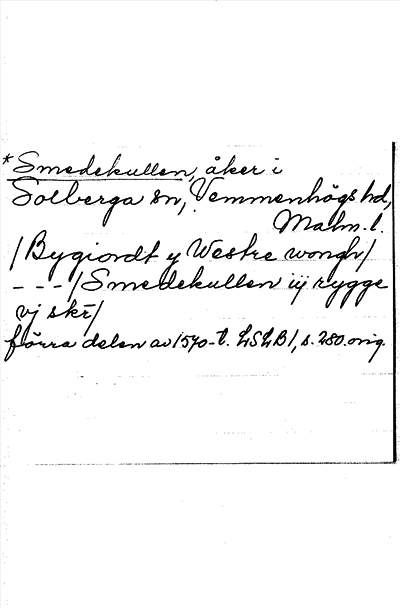 *Smedekullen, åker i
Solberga sn, Vemmenhögs hd,
Malm. l.
/Bygiordt y Westre wongh/
- - -/Smedekullen iij rygge
vj skr̄/
förra delen av 1570-t. LSLB1, s. 280. orig.